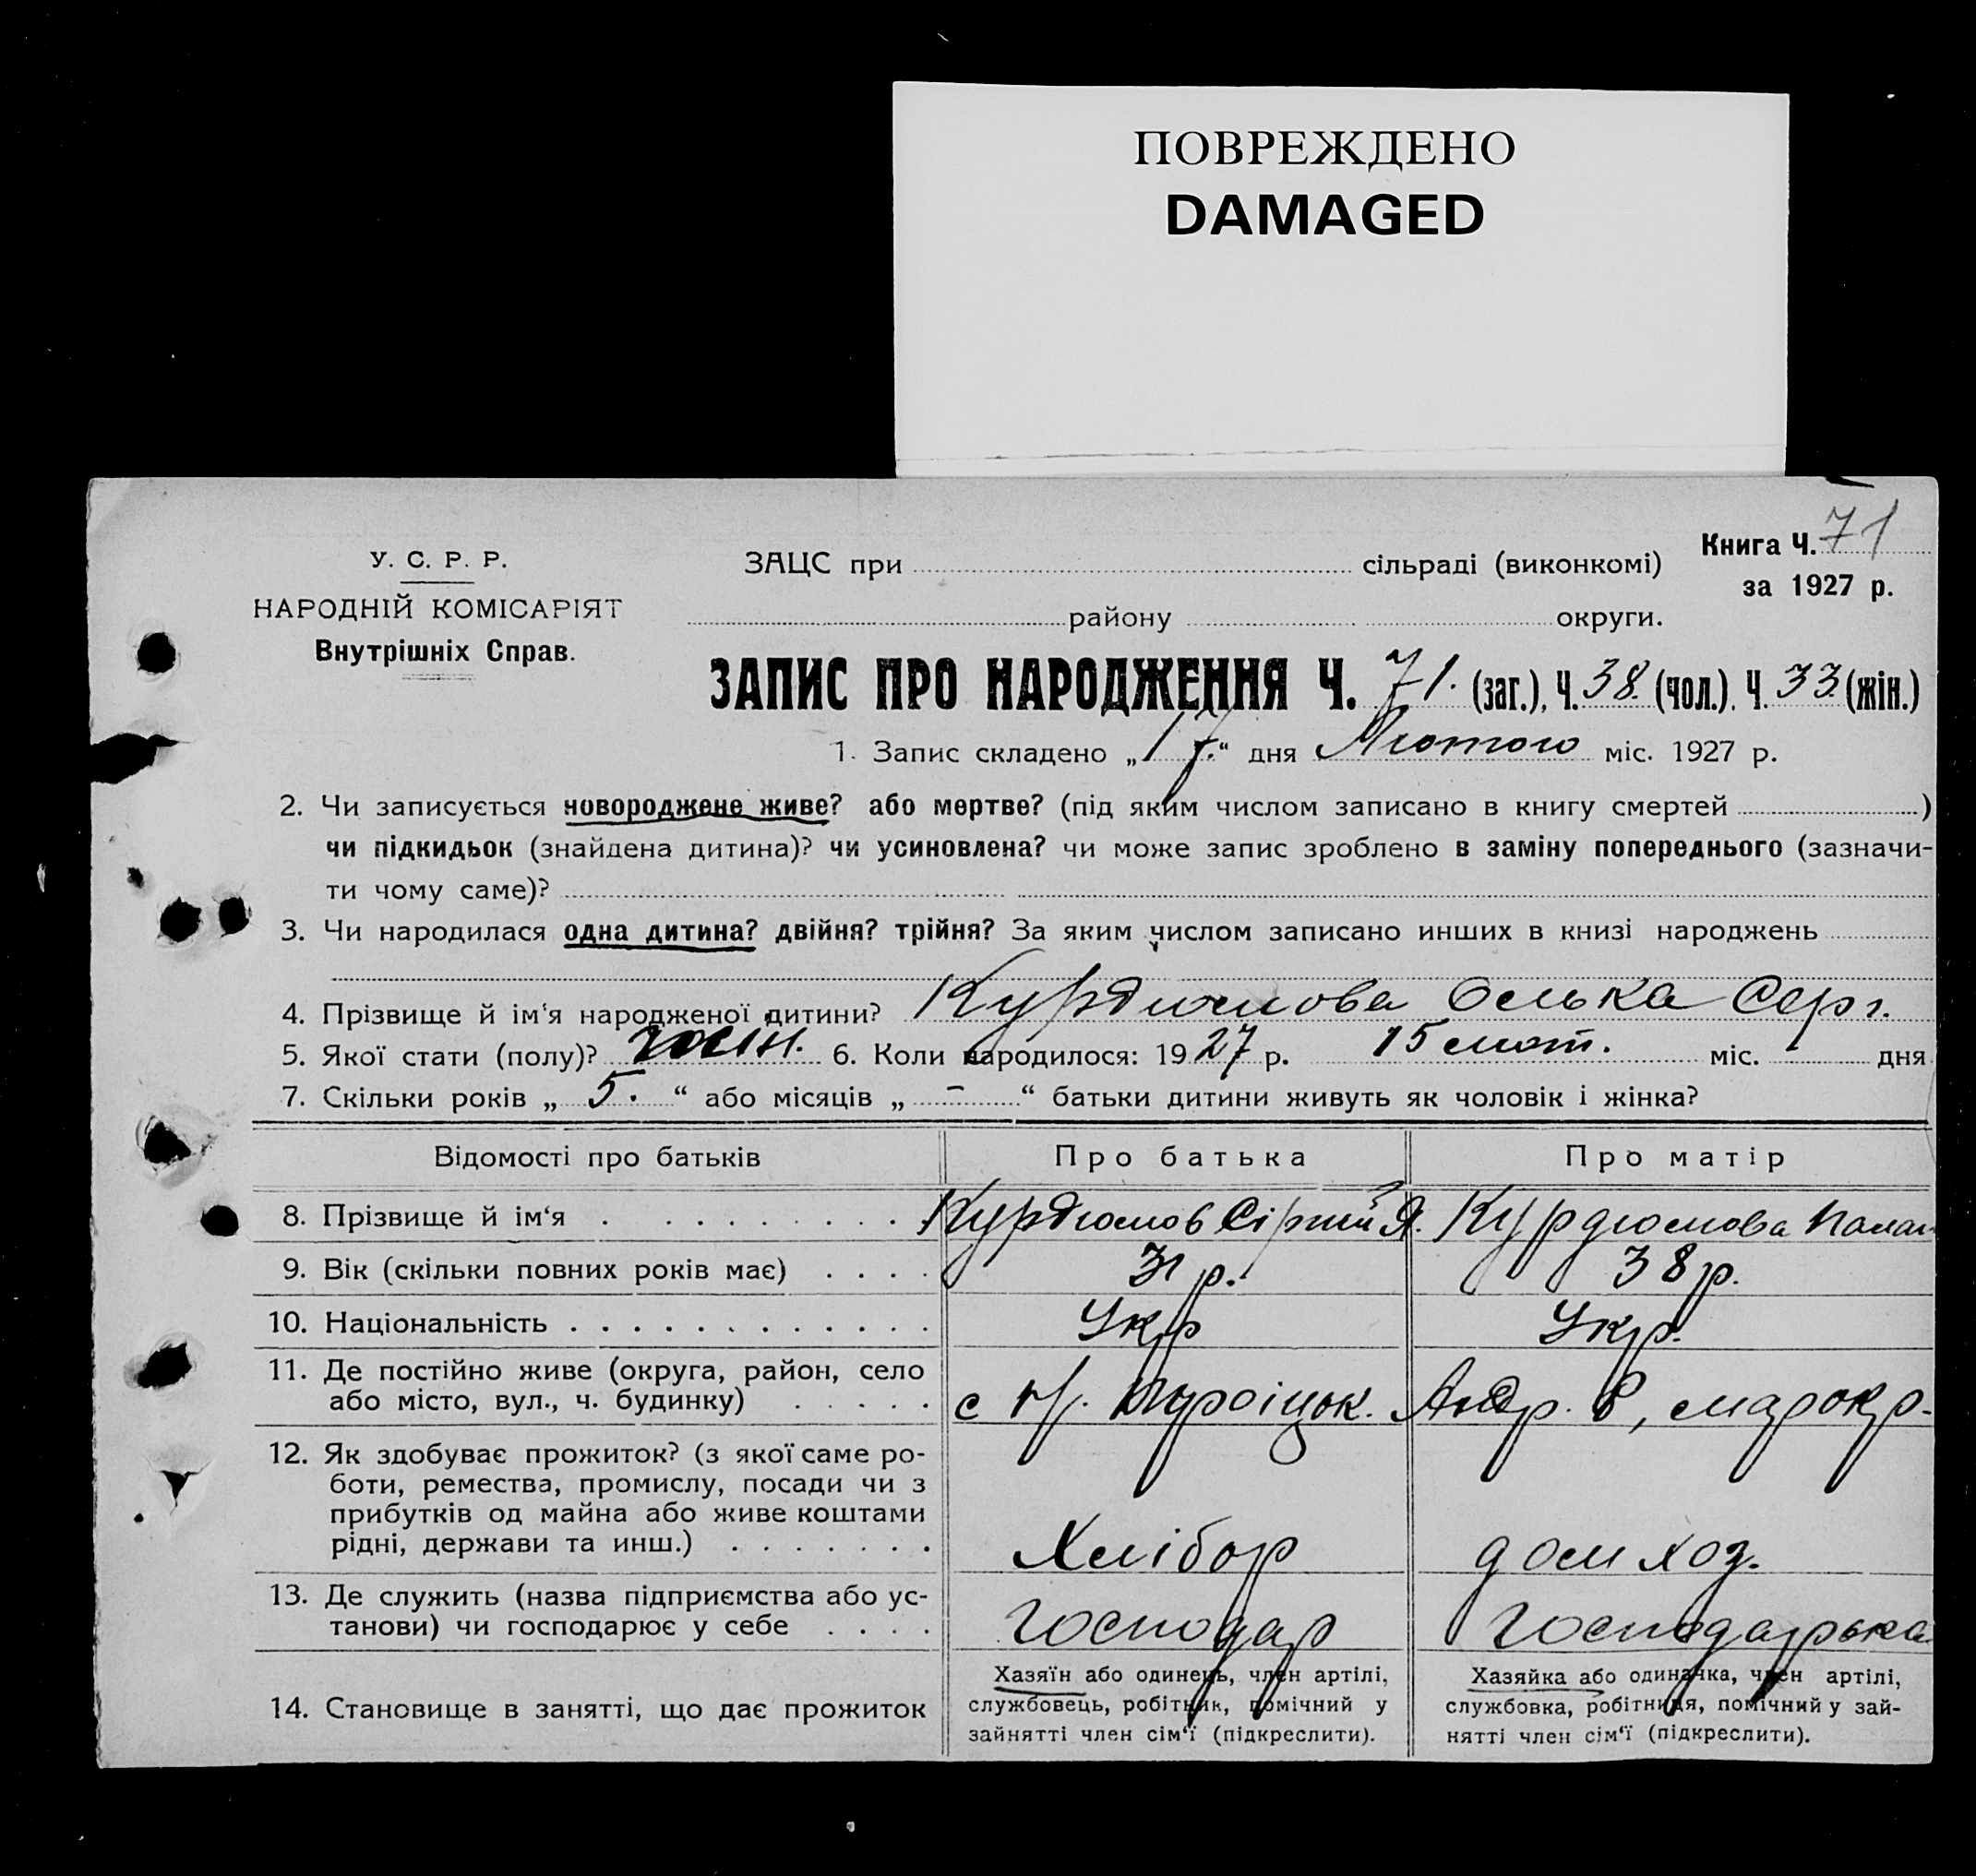 ПОВРЕЖДЕНО
DAMAGED
Книга Ч. 71
за 1927 р.
У. С. Р. Р.
НАРОДНІЙ КОМІСАРІЯТ
Внутрішніх Справ.
ЗАЦС при сільраді (виконкомі)
району округи.
ЗАПИС ПРО НАРОДЖЕННЯ Ч. 71. (заг.), Ч. 38. (чол.), Ч. 33. (жін.)
1. Запис складено „17.“ дня Лютого міс. 1927 р.
2. Чи записується новороджене живе? або мертве? (під яким числом записано в книгу смертей )
чи підкидьок (знайдена дитина)? чи усиновлена? чи може запис зроблено в заміну попереднього (зазначи-
ти чому саме)?
3. Чи народилася одна дитина? двійня? трійня? За яким числом записано инших в книзі народжень
4. Прізвище й ім‘я народженої дитини? Курдюмова Олька Серг.
5. Якої стати (полу)? жін. 6. Коли народилося: 1927 р. 15 лют. міс. дня
7. Скільки років „ 5. “ або місяців „ - “ батьки дитини живуть як чоловік і жінка?
Відомості про батьків Про батька Про матір
8. Прізвище й ім‘я Курдюмов Сіргій Я. Курдюмова Палаг
9. Вік (скільки повних років має) 31 р. 38 р.
10. Національність Укр Укр.
11. Де постійно живе (округа, район, село
або місто, вул., ч. будинку) с
12. Як здобуває прожиток? (з якої саме ро-
боти, ремества, промислу, посади чи з
прибутків од майна або живе коштами
рідні, держави та инш.) Хлібор дом хоз.
13. Де служить (назва підприємства або ус-
танови) чи господарює у себе Господар Господарька
14. Становище в занятті, що дає прожиток
Хазяїн або одинець, член артілі,
службовець, робітник, помічний у
зайнятті член сім‘ї (підкреслити).
Хазяйка або одиначка, член артілі,
службовка, робітниця, помічний у зай-
нятті член сім‘ї (підкреслити).